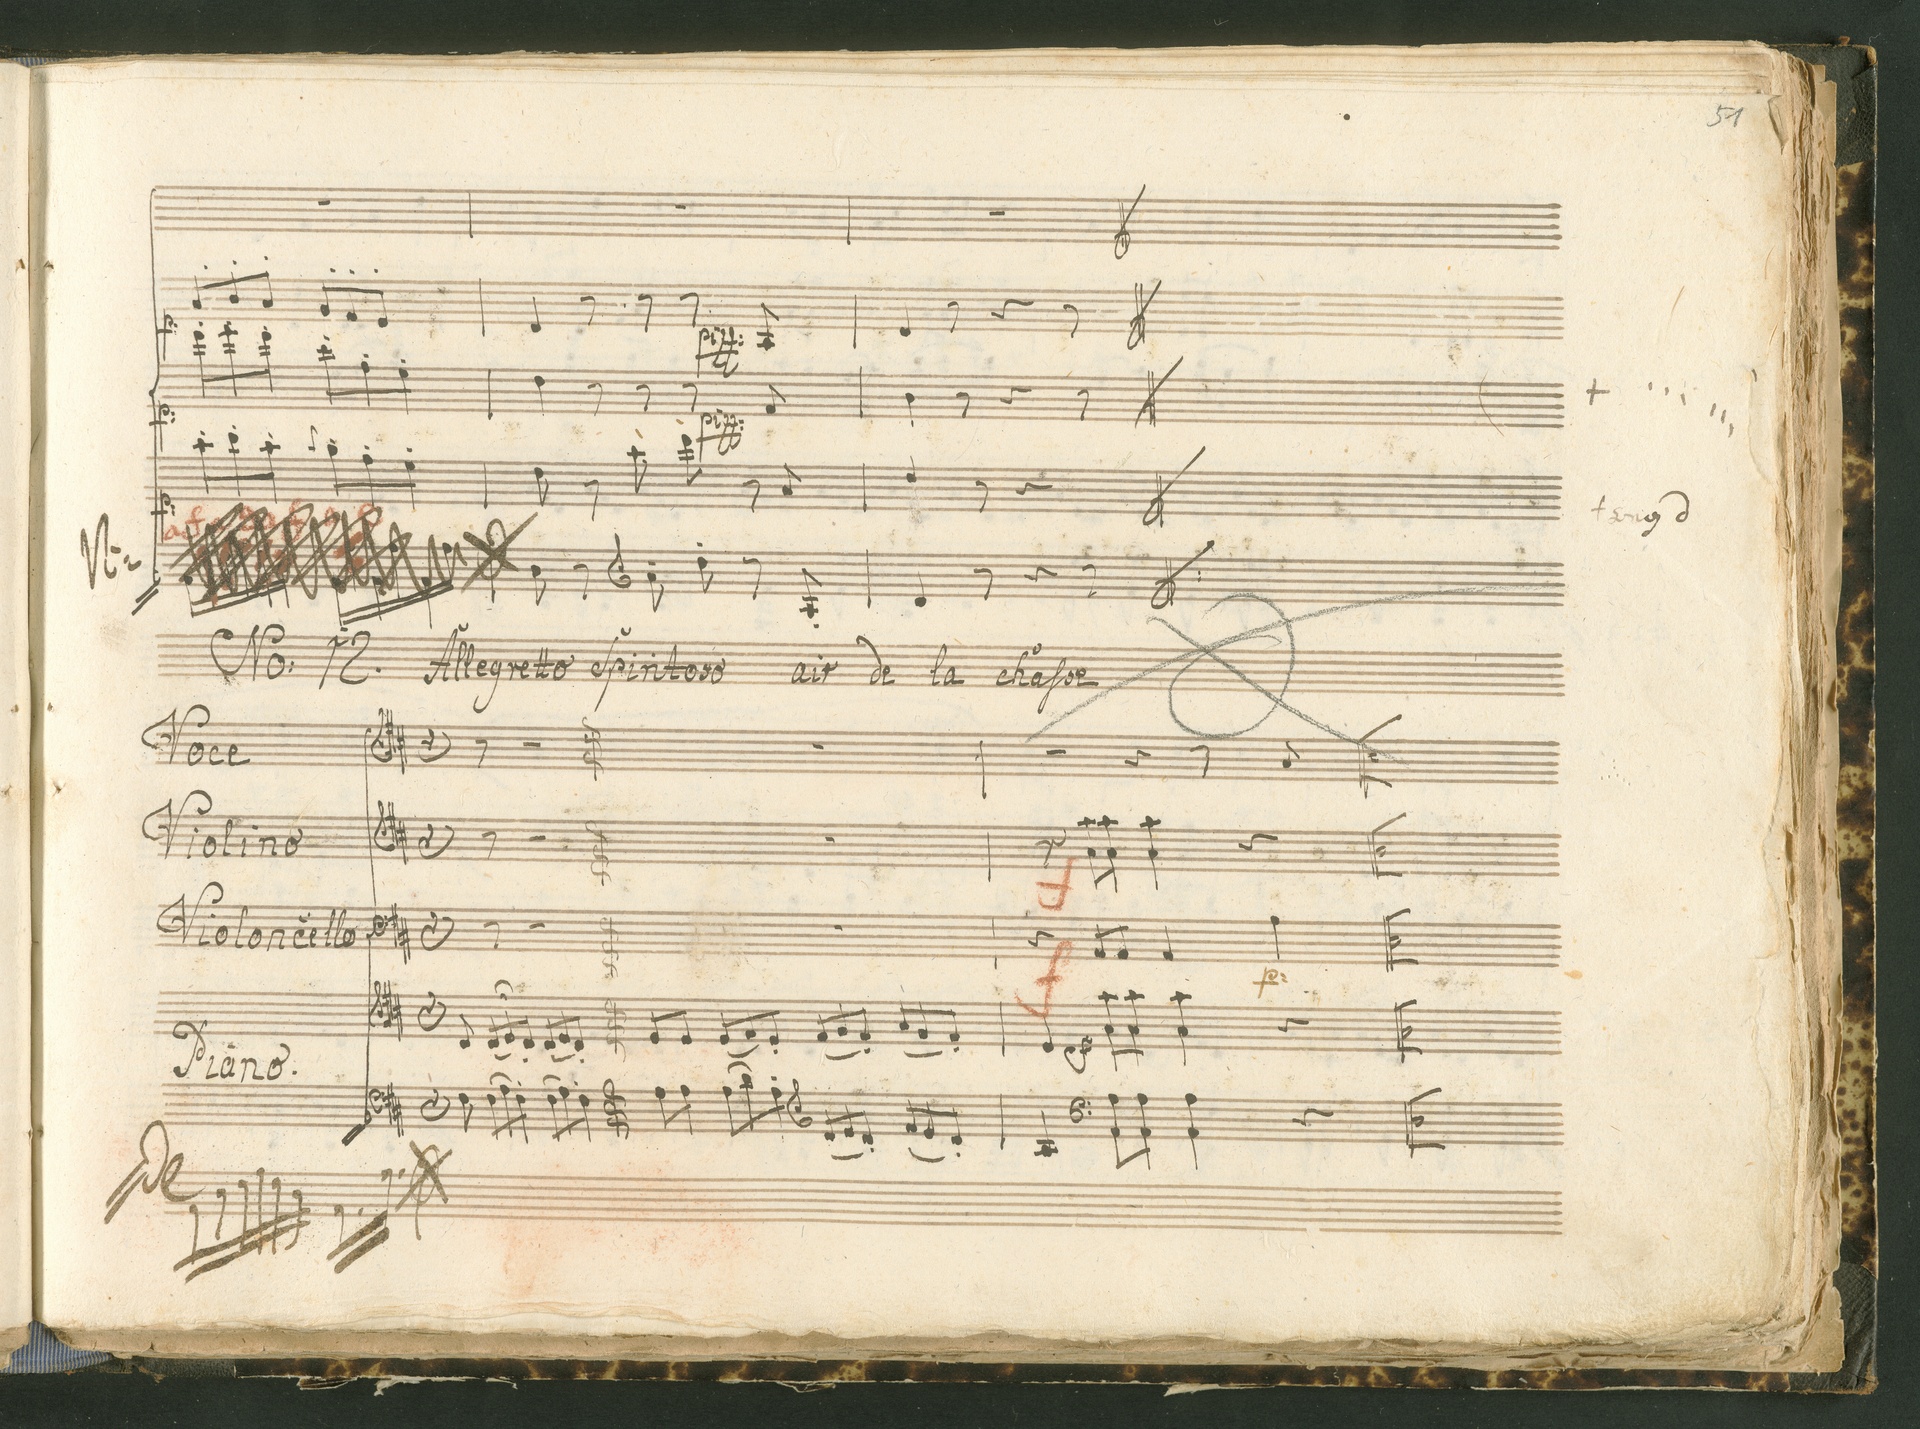 51
p:
pizz:
p:
pizz:
p:
No: 12. Allegretto Spiritoso air de la chasse
Voce
Violino
Violoncello
p:
Piano.